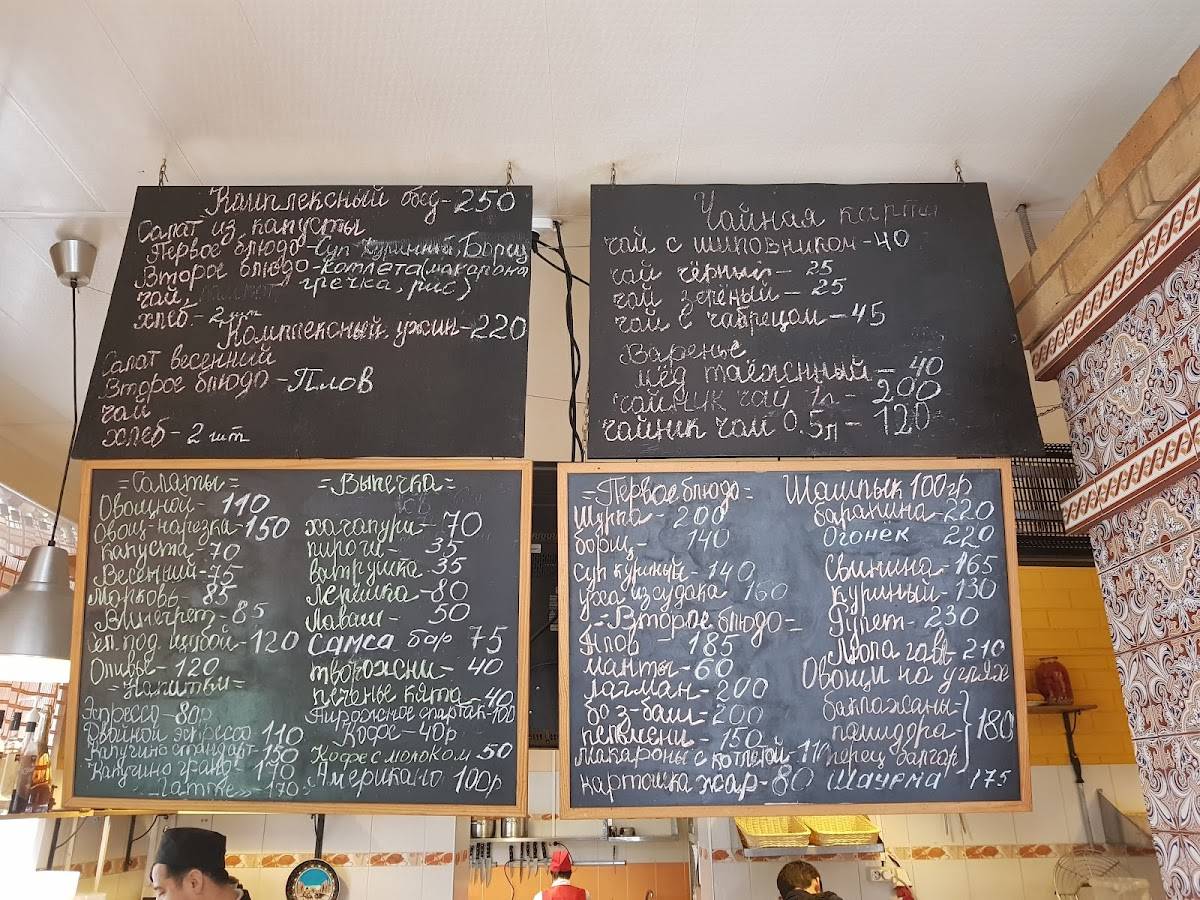 Комплексный обед-250
Салат из капусты
Первое блюдо-Суп куринный, Борщ
Второе блюдо-котлета(макарона
гречка, рис)
чай,
хлеб-2 шт
Комплексный ужин-220
Салат весенний
Второе блюдо-Плов
чай
хлеб-2 шт
Чайная карта
чай с шиповником-40
чай чёрный-25
чай зелёный-25
чай с чабрецом-45
Варенье
мёд таёжнный-40
чайник чай 1л-200
чайник чай 0.5л-120
=Салаты=
Овощной-110
Овощ-нарезка-150
капуста-70
Весенний-75
Морковь-85
Винегрет-85
Сел. под шубой-120
Оливье-120
=Напитки=
Эспрессо-80р
Двойной эспрессо 110
Капучино стандарт-150
Капучино гранд 170
Латте 170
=Выпечка=
хачапури-70
пироги-35
ватрушка 35
лепешка-80
Лаваш-50
Самса бар 75
творожени-40
печенье кята-40
Пироженое спартак-100
Кофе-40р
Кофе с молоком 50
Американо 100р
=Первое блюдо=
Шурпа-200
борщ-140
суп куриный-140
уха из судака 160
-Второе блюдо-
Плов 185
манты-60
лагман-200
боз-баш-200
пельмени-150
макароны с котлетой-110
картошка жар-80
Шашлык 100гр
баранина-220
Огонёк 220
Свинина-165
куриный-130
Рулет-230
Люля гов-210
Овощи на углях
баклажаны-
помидора-
перец болгар
180
Шаурма 175